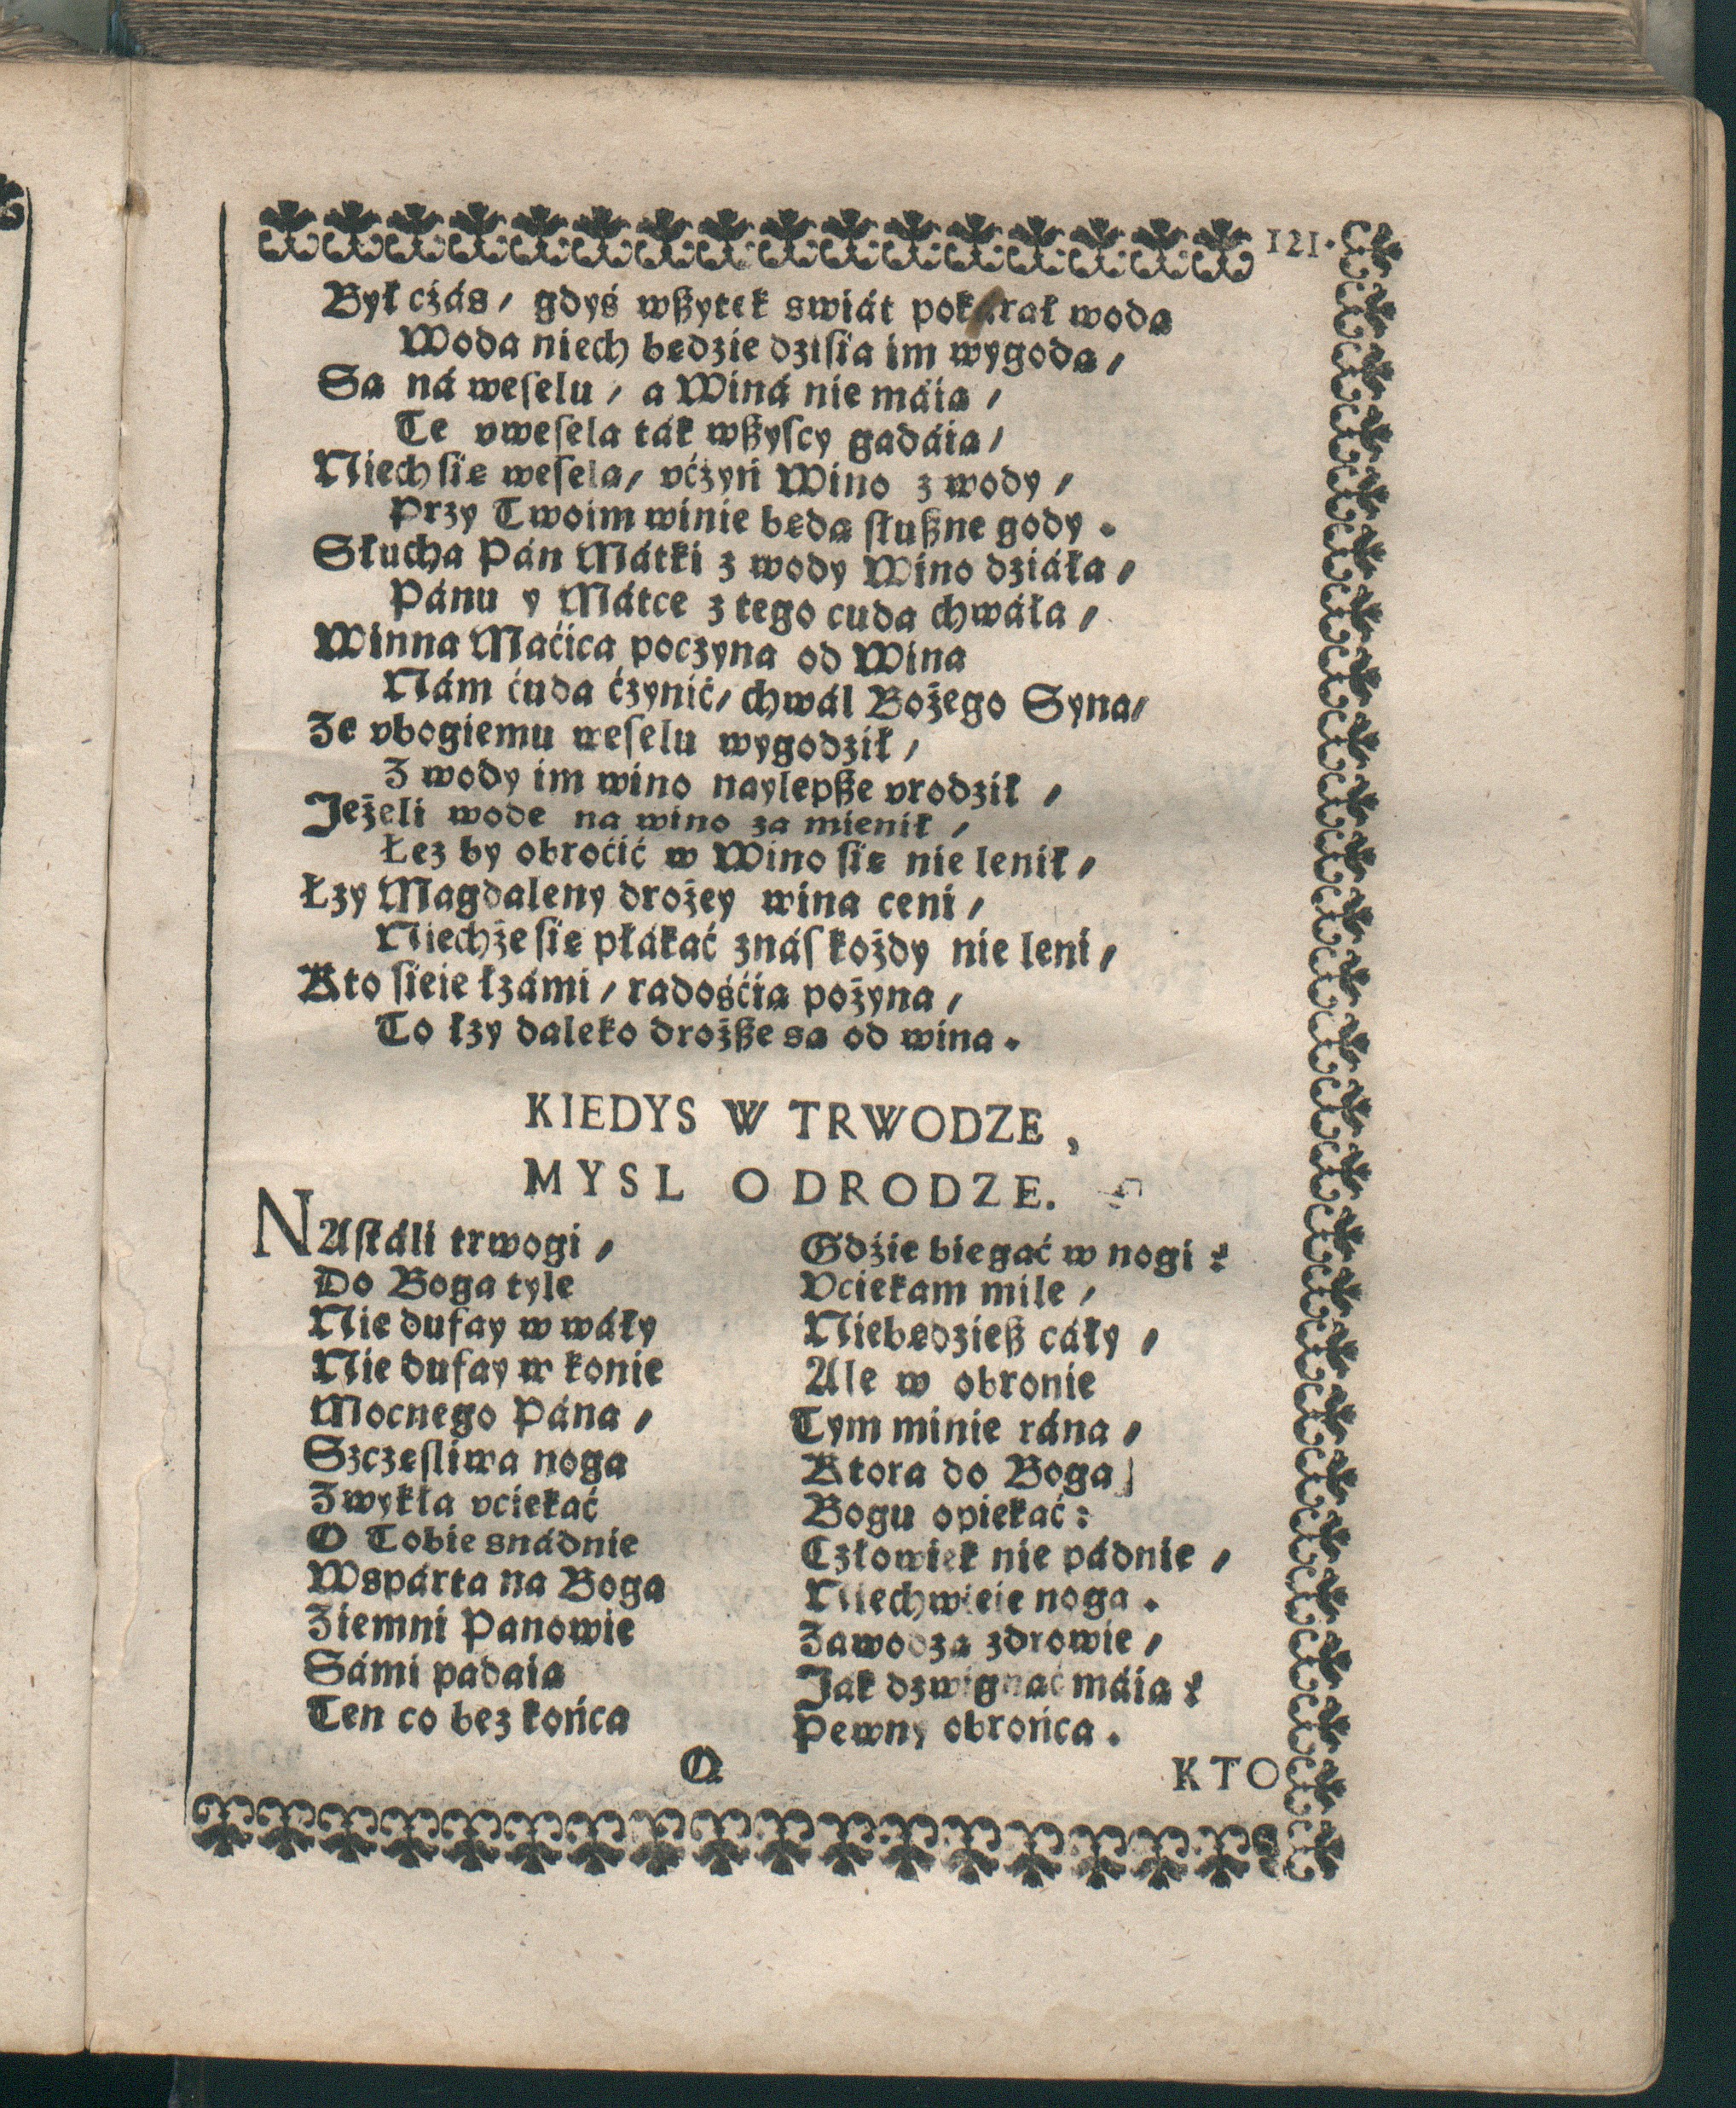 121.
Był czás, gdyś wßytek swiát pokarał wodą
Woda niech będzie dzisia im wygodą,
Są ná weselu, a Winá nie máią,
Te vwesela ták wßyscy gadáią,
Niech się weselą, vćżyń Wino z wody,
Przy Twoim winie będą słußne gody.
Słucha Pán Mátki z wody Wino dziáła,
Pánu y Mátce z tego cuda chwáła,
Winna Maćica poczyna od Wina
Nám ćuda ćżynić, chwál Bożego Syna,
Ze vbogiemu weselu wygodził,
Z wody im wino naylepße vrodził,
Jeżeli wodę na wino za mienił,
Łez by obroćić w Wino się nie lenił,
Łzy Magdaleny drożey wina ceni,
Niechże się płákać znás kożdy nie leni,
Kto sieie łzámi, radośćią pożyna,
To łzy daleko drożße są od wina.
KIEDYS W TRWODZE,
MYSL O DRODZE.
NAstáli trwogi,
Gdźie biegać w nogi?
Do Boga tyle
Vciekam mile,
Nie dufay w wáły
Niebędzieß cáły,
Nie dufay w konie
Ale w obronie
Mocnego Pána,
Tym minie rána,
Szczęsliwa noga
Ktora do Boga
Zwykła vciekać
Bogu opiekać:
O Tobie snádnie
Człowiek nie pádnie,
Wspárta na Boga
Niechwieie noga.
Ziemni Panowie
Zawodzą zdrowie,
Sámi padaią
Jak dzwignąć máią?
Ten co bez końca
Pewny obrońca.
Q
KTO